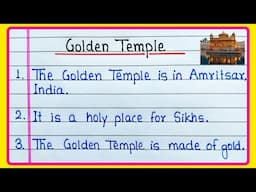 Golden Temple
1. The Golden Temple is in Amritsar,
India.
2. It is a holy place for Sikhs.
3. The Golden Temple is made of gold.